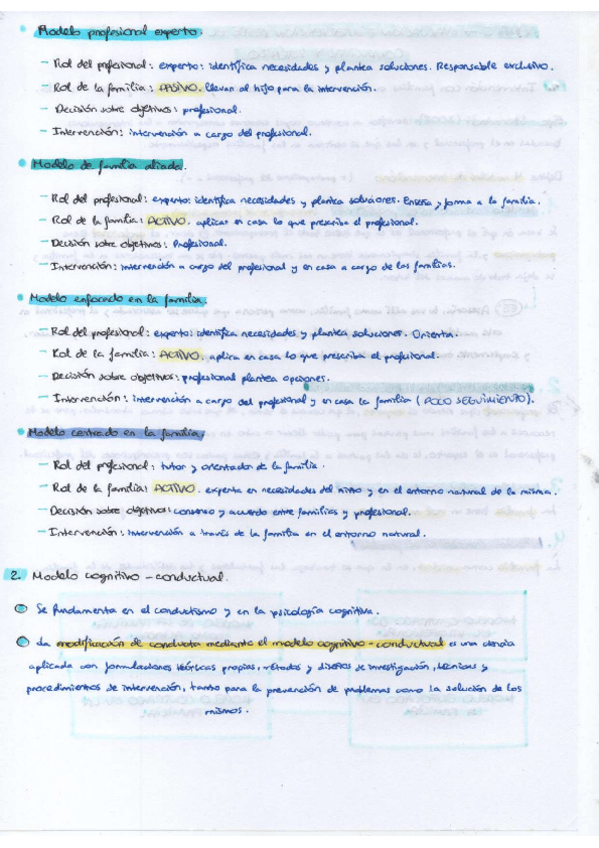 • Modelo profesional experto:
– Rol del profesional: experto: identifica necesidades y plantea soluciones. Responsable exclusivo.
– Rol de la familia: PASIVO. llevan al hijo para la intervención.
– Decisión sobre objetivos: profesional.
– Intervención: intervención a cargo del profesional.
• Modelo de familia aliada.
– Rol del profesional: experto: identifica necesidades y plantea soluciones. Enseña y forma a la familia.
– Rol de la familia: ACTIVO. aplican en casa lo que prescriba el profesional.
– Decisión sobre objetivos: Profesional.
– Intervención: intervención a cargo del profesional y en casa a cargo de las familias.
• Modelo enfocado en la familia.
– Rol del profesional: experto: identifica necesidades y plantea soluciones. Orienta.
– Rol de la familia: ACTIVO. aplica en casa lo que prescriba el profesional.
– Decisión sobre objetivos: profesional plantea opciones.
– Intervención: intervención a cargo del profesional y en casa la familia (POCO SEGUIMIENTO).
• Modelo centrado en la familia.
– Rol del profesional: tutor y orientador de la familia.
– Rol de la familia: ACTIVO. experta en necesidades del niño y en el entorno natural de la misma.
– Decisión sobre objetivos: consenso y acuerdo entre familias y profesional.
– Intervención: intervención a través de la familia en el entorno natural.
2. Modelo cognitivo – conductual.
Se fundamenta en el conductismo y en la psicología cognitiva.
La modificación de conducta mediante el modelo cognitivo – conductual es una ciencia
aplicada con formulaciones teóricas propias, métodos y diseños de investigación, técnicas y
procedimientos de intervención, tanto para la prevención de problemas como la solución de los
mismos.